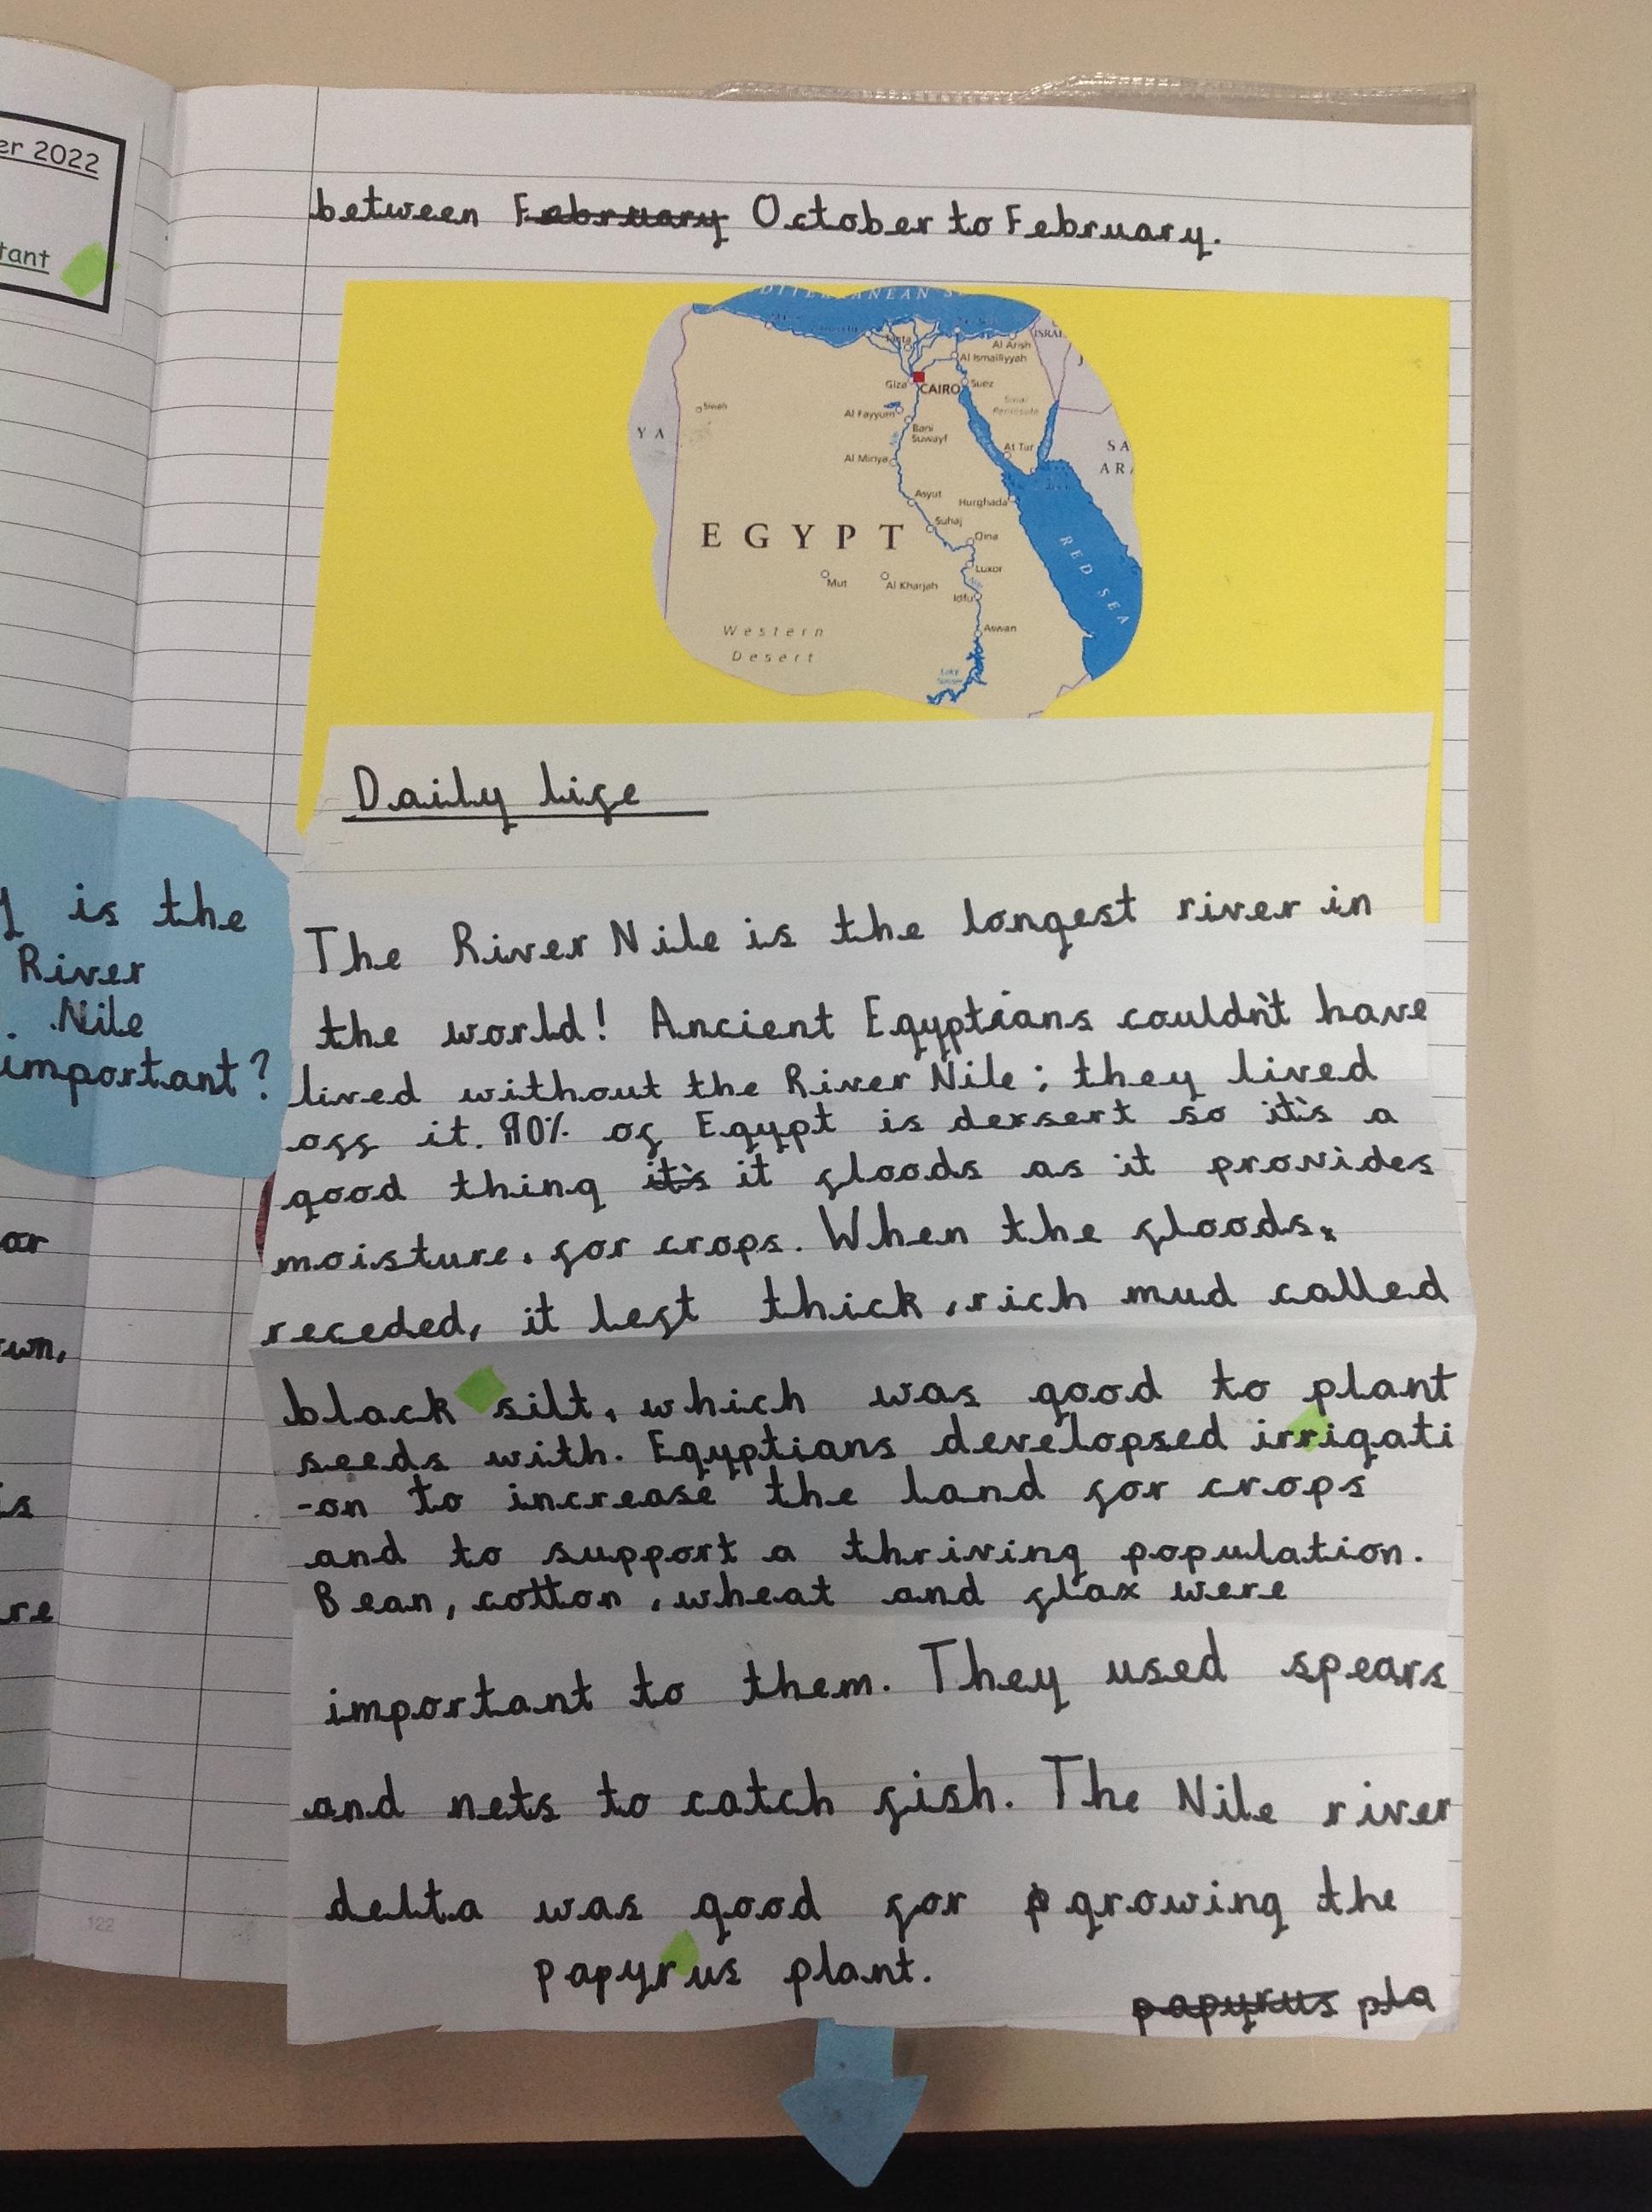 er 2022
tant
between F̶e̶b̶r̶u̶a̶r̶y̶ October to February.
DITERRANEAN S
Tanta
Al Arish
ISRA
Al Ismailiyyah
Giza
CAIRO
Suez
Siwah
Sinai
Peninsula
Al Fayyum
YA
Bani
Suwayf
At Tur
SA
ARA
Al Minya
Asyut
Hurghada
Suhaj
EGYPT
Qina
RED SEA
Luxor
Mut
Al Kharjah
Idfu
Western
Desert
Aswan
Daily life
is the
River
Nile
important?
The River Nile is the longest river in
the world! Ancient Egyptians couldn't have
lived without the River Nile; they lived
off it. 90% of Egypt is dersert so it's a
good thing i̶t̶'̶s̶ it floods as it provides
moisture. for crops. When the floods.
receded, it left thick, rich mud called
black silt, which was good to plant
seeds with. Egyptians developsed irrigati
-on to increase the land for crops
and to support a thriving population.
Bean, cotton, wheat and flax were
important to them. They used spears
and nets to catch fish. The Nile river
delta was good for p̶ growing the
papyrus plant.
p̶a̶p̶y̶r̶u̶s̶ pla
or
own,
is
re
122